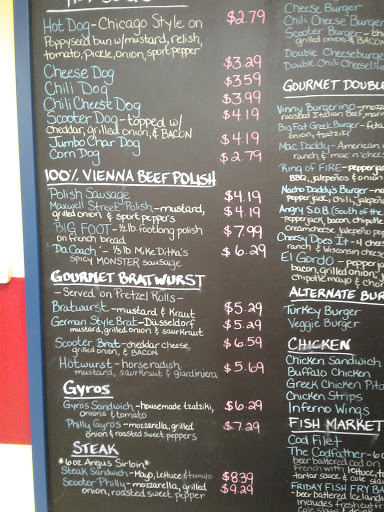 Hot Dog - Chicago Style on $2.79
Poppyseed bun w/mustard, relish,
tomato, pickle, onion, sport pepper
Cheese Dog $3.29
Chili Dog $3.59
Chili Cheese Dog $3.99
Scooter Dog - topped w/ $4.19
cheddar, grilled onion, & BACON
Jumbo Char Dog $4.19
Corn Dog $2.79
100% VIENNA BEEF POLISH
Polish Sausage $4.19
Maxwell Street Polish - mustard, $4.19
grilled onion & sport peppers
"BIG FOOT - 1/2 lb footlong polish $7.99
on french bread
"Da Coach" - 1/3 lb Mike Ditka's $6.29
Spicy MONSTER Sausage
GOURMET BRATWURST
- Served on Pretzel Rolls -
Bratwurst - mustard & Kraut $5.29
German Style Brat - Dusseldorf $5.29
mustard, grilled onion & saurkraut
Scooter Brat - cheddar cheese, $6.59
grilled onion, & BACON
Hotwurst - horseradish $5.69
mustard, saurkraut & giardiniera
Gyros
Gyros Sandwich - housemade tzatziki, $6.29
onions & tomato
Philly Gyros - mozzarella, grilled $7.29
onion & roasted sweet peppers
STEAK
*6 oz Angus Sirloin*
Steak Sandwich - Mayo, Lettuce & tomato $8.39
Scooter Philly - mozzarella, grilled $9.29
onion, roasted sweet pepper
Cheese Burger
Chili Cheese Burger
Scooter Burger - 
grilled onion & BACON
Double Cheeseburger
Double Chili Cheese
GOURMET DOUBL
Vinny Burgerino - mozza
roasted Italian Beef, mari
Big Fat Greek Burger -
onion, tzatziki
Mac Daddy - American
ranch & mac n' chees
"Ring of FIRE - pepperjac
BBQ, jalapeños & onion
Nacho Daddy's Burger - nac
pepper jack, chili, jalapeño
Angry SoB (South of the
Pepperjack, bacon, chipotle
creamcheese, jalapeno
Cheesy Does It - 4 chees
ranch & Wisconsin chees
El Gordo - pepperja
bacon, grilled onion,
chipotle mayo &
ALTERNATE BUR
Turkey Burger
Veggie Burger
CHICKEN
Chicken Sandwich
Buffalo Chicken
Greek Chicken Pita
Chicken Strips
Inferno Wings
FISH MARKET
Cod Filet
The Codfather - 6 oz
beer battered cod on
French with lettuce, to
tartar sauce &
FRIDAY FISH FRY
- beer battered Icelandi
Includes fresh cut fr